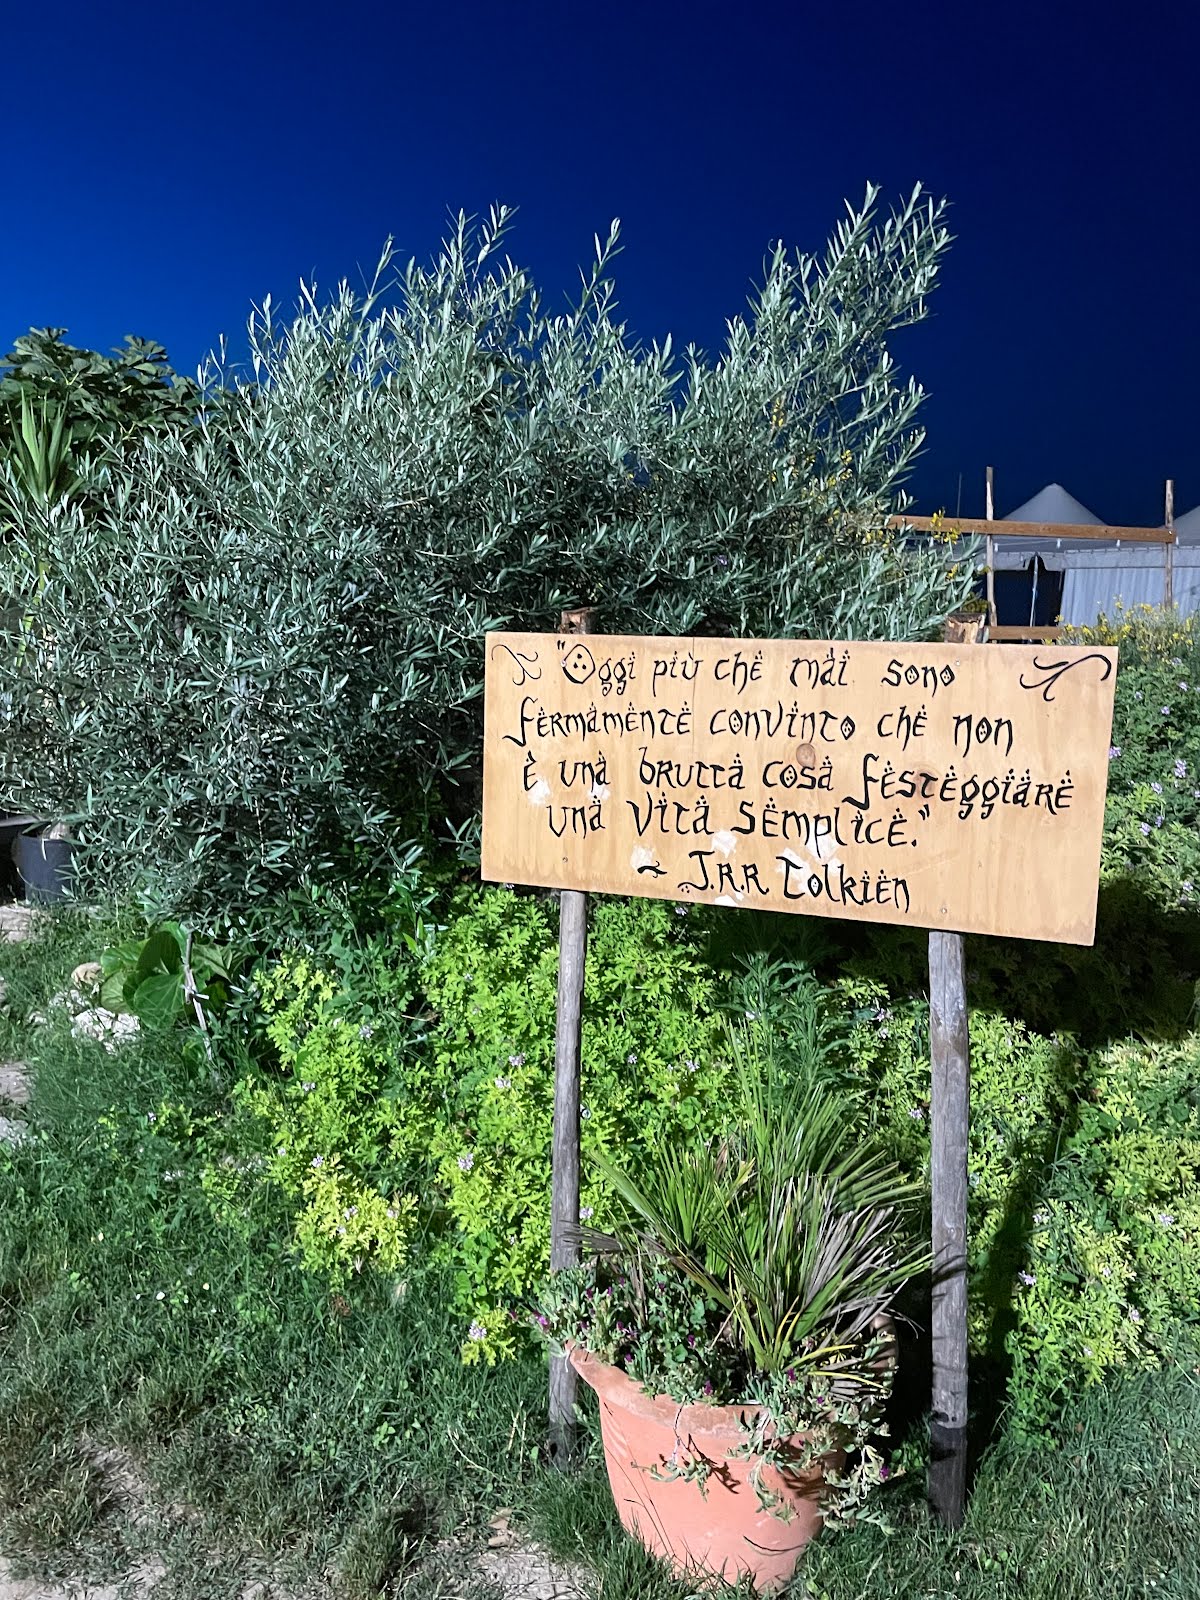 "Oggi più che mai sono
fermamente convinto che non
è una brutta cosa festeggiare
una vita semplice."
~ J.R.R. Tolkien